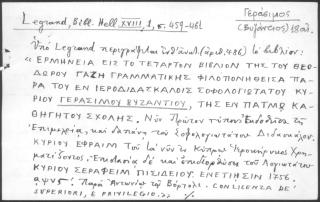 Legrand, Bibl. Hell. XVIII, 1, σ. 459-461
Γεράσιμος
(Βυζάντιος) 18 αἰ.
Ὑπὸ Legrand περιγράφεται (ἀριθ. 486) τὸ βιβλίον:
« ΕΡΜΗΝΕΙΑ ΕΙΣ ΤΟ ΤΕΤΑΡΤΟΝ ΒΙΒΛΙΟΝ ΤΗΣ ΤΟΥ ΘΕΟ-
ΔΩΡΟΥ ΓΑΖΗ ΓΡΑΜΜΑΤΙΚΗΣ ΦΙΛΟΠΟΝΗΘΕΙΣΑ ΠΑ-
ΡΑ ΤΟΥ ΕΝ ΙΕΡΟΔΙΔΑΣΚΑΛΟΙΣ ΣΟΦΟΛΟΓΙΩΤΑΤΟΥ ΚΥ-
ΡΙΟΥ ΓΕΡΑΣΙΜΟΥ ΒΥΖΑΝΤΙΟΥ, ΤΗΣ ΕΝ ΠΑΤΜΩ ΚΑ-
ΘΗΓΗΤΟΥ ΣΧΟΛΗΣ. Νῦν Πρῶτον τύποις Ἐκδοθεῖσα τῇ
Ἐπιμελείᾳ, καὶ δαπάνῃ τοῦ Σοφολογιωτάτου Διδασκάλου,
ΚΥΡΙΟΥ ΕΦΡΑΙΜ Τοῦ τὰ νῦν ἐν Κύπρῳ Ἱεροκήρυκος Χρη-
ματίζοντος. Ἐπιστασίᾳ δὲ καὶ ἐπιδιορθώσει τοῦ Λογιωτάτου
ΚΥΡΙΟΥ ΣΕΡΑΦΕΙΜ ΠΙΣΙΔΕΙΟΥ. ΕΝΕΤΙΗΣΙΝ 1756.
αψνς΄. Παρὰ Ἀντωνίῳ τῷ Βόρτολι. CON LICENZA DE'
SUPERIORI, E PRIVILEGIO.»